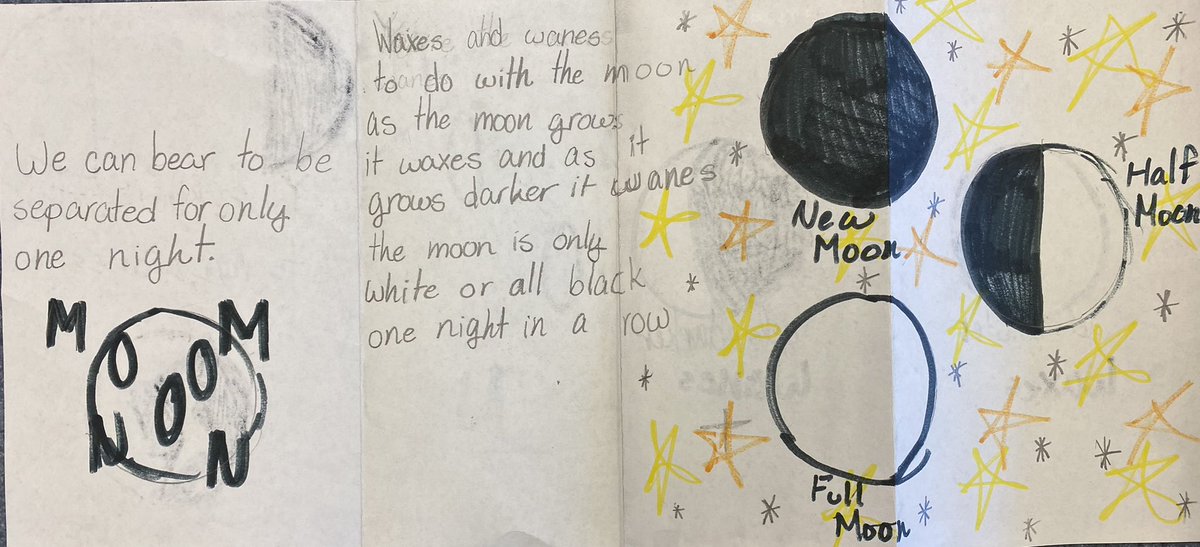 We can bear to be
separated for only
one night.
M M
O O
O
N N
Waxes and wanes
to do with the moon
as the moon grows
it waxes and as it
grows darker it wanes
the moon is only
white or all black
one night in a row
New
Moon
Half
Moon
Full
Moon